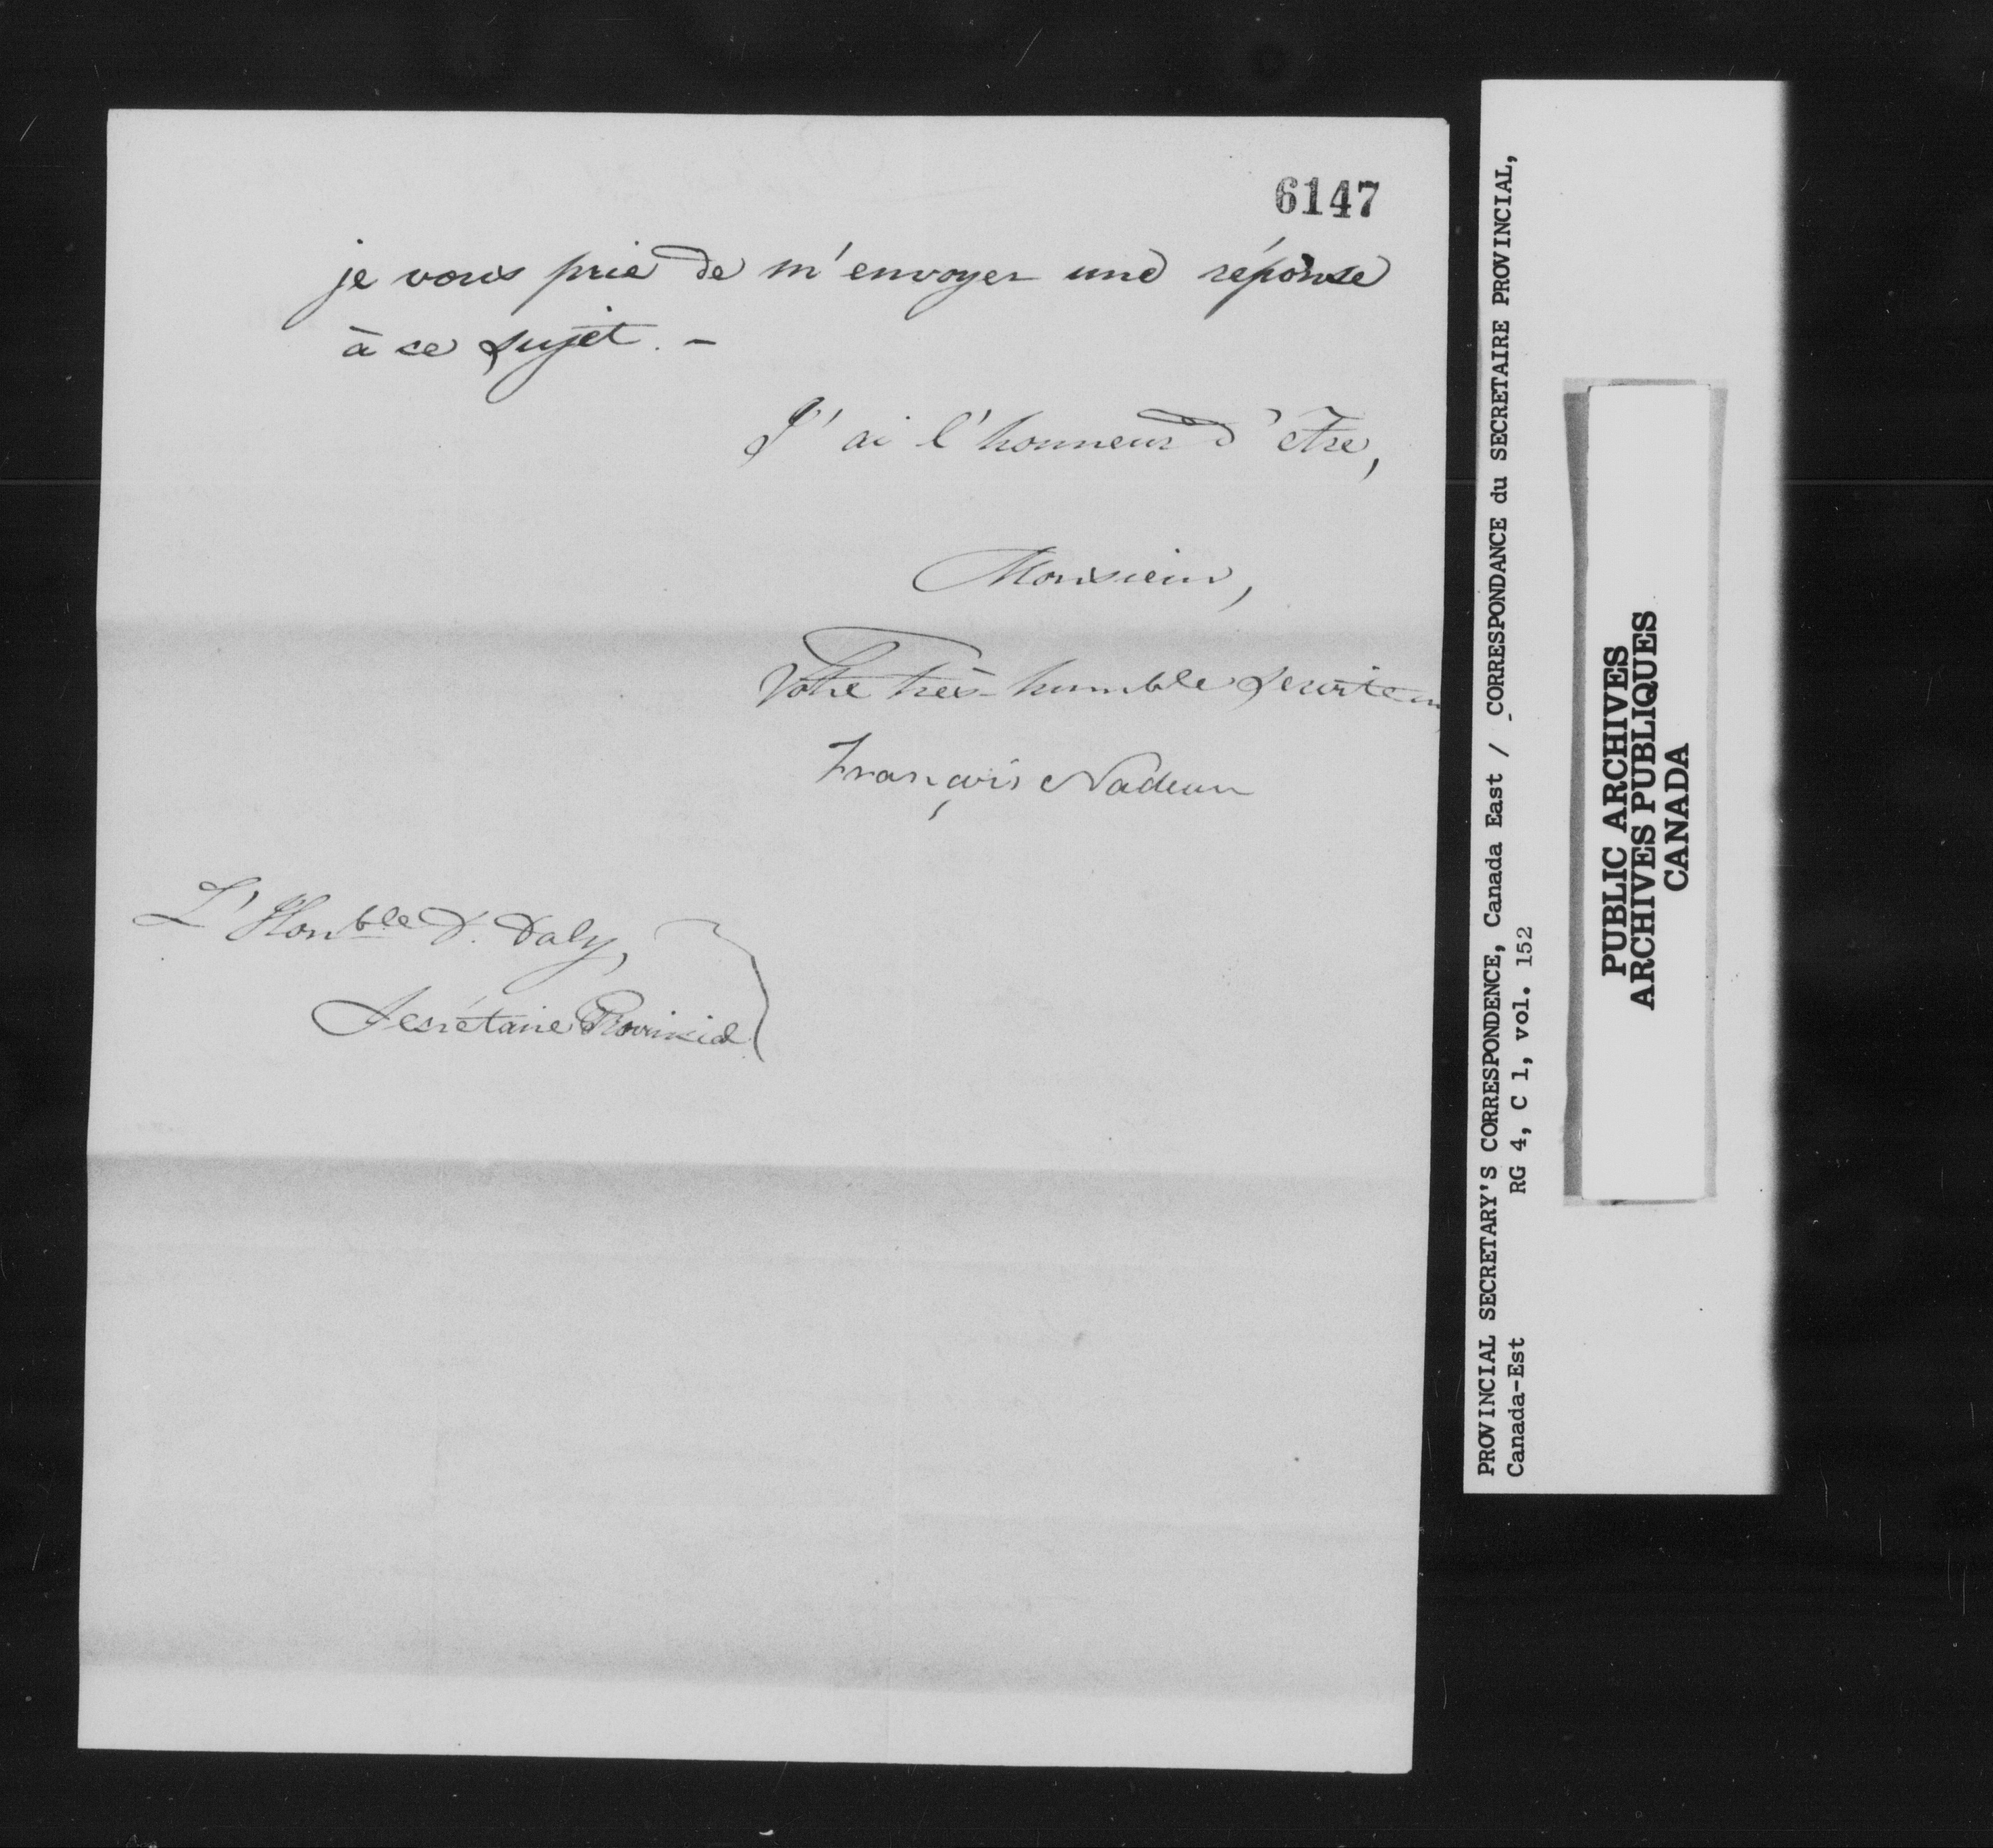 6147
je vous prie de m'envoyer une réponse
à ce sujet. -
J'ai l'honneur d'être,
Monsieur,
Votre très-humble serviteur
François Nadeau
L'Honble D. Daly,
Secrétaire Provincial
PROVINCIAL SECRETARY'S CORRESPONDENCE, Canada East / CORRESPONDANCE du SECRETAIRE PROVINCIAL,
Canada-Est RG 4, C 1, vol. 152
PUBLIC ARCHIVES
ARCHIVES PUBLIQUES
CANADA